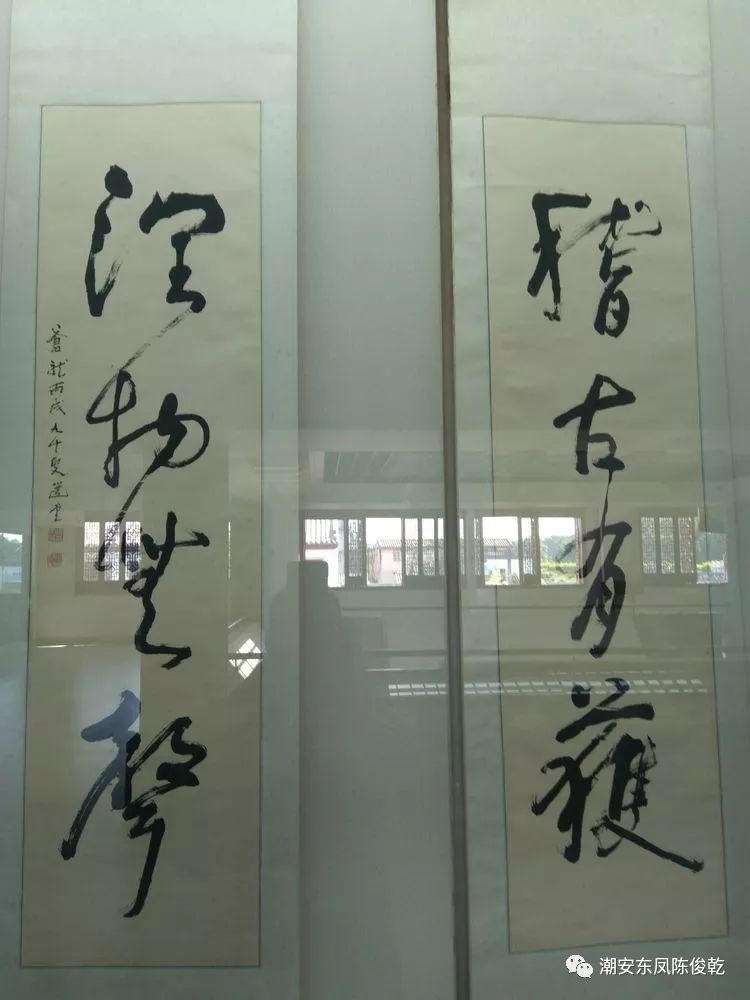 稽古有獲
潤物無聲
蒼龍丙戌九十叟選堂
潮安东凤陈俊乾